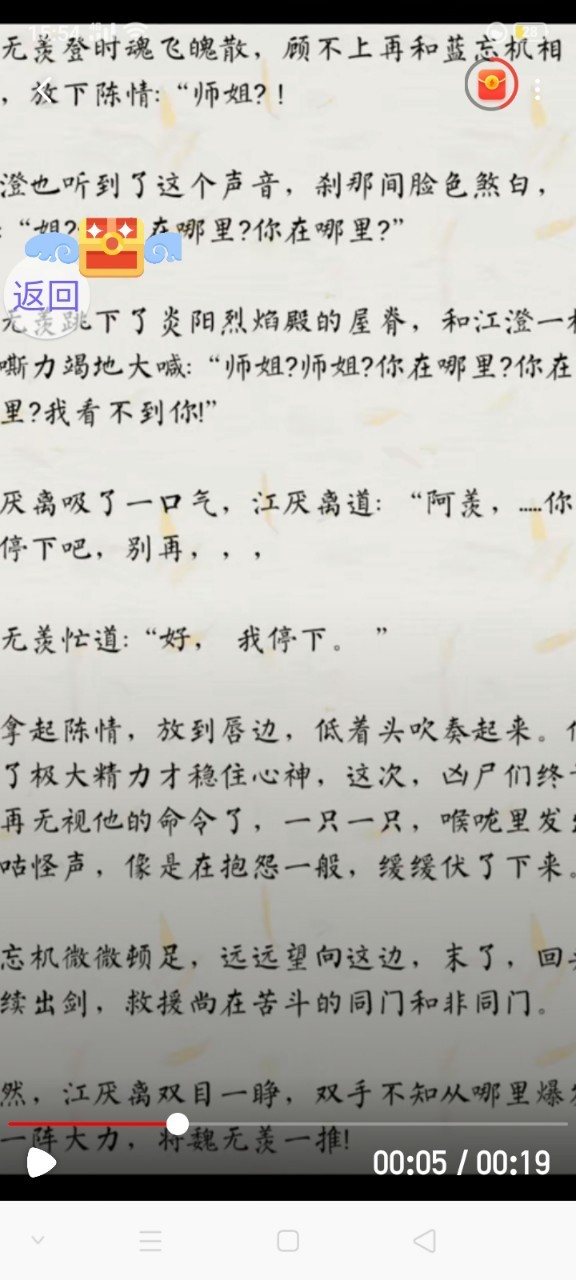 15:54
28
无羡登时魂飞魄散，顾不上再和蓝忘机相
，放下陈情：“师姐？！
澄也听到了这个声音，刹那间脸色煞白，
：“姐？在哪里？你在哪里？”
返回
无羡跳下了炎阳烈焰殿的屋脊，和江澄一
嘶力竭地大喊：“师姐？师姐？你在哪里？你在
里？我看不到你！”
厌离吸了一口气，江厌离道：“阿羡，……你
停下吧，别再，，，
无羡忙道：“好， 我停下。 ”
拿起陈情，放到唇边，低着头吹奏起来。
了极大精力才稳住心神，这次，凶尸们终
再无视他的命令了，一只一只，喉咙里发
咕怪声，像是在抱怨一般，缓缓伏了下来。
忘机微微顿足，远远望向这边，末了，回
续出剑，救援尚在苦斗的同门和非同门。
然，江厌离双目一睁，双手不知从哪里爆
一阵大力，将魏无羡一推！
00:05 / 00:19